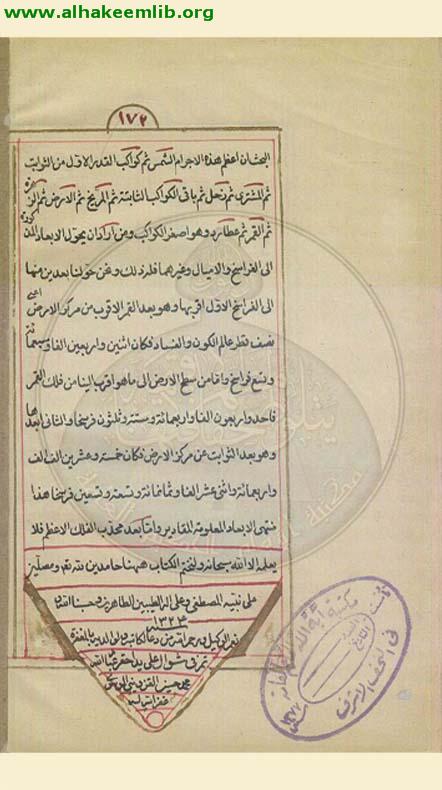 www.alhakeemlib.org
١٧٢
البحث ان اعظم هذه الاجرام الشمس ثم كواكب القدر الاول من الثوابت
ثم المشترى ثم زحل ثم باقى الكواكب الثابتة ثم المريخ ثم الارض ثم الزهرة
ثم القمر ثم عطارد وهو اصغر الكواكب ومن اراد ان يحول الابعاد
الى الفراسخ والاميال وغيرهما فله ذلك ونحن حولنا بعدين منها
الى الفراسخ الاول اقربها وهو بعد القمر الاقرب من مركز الارض اعنى
نصف قطر عالم الكون والفساد فكان اثنين واربعين الفا وسبعمائة
وتسع فراسخ واما من سطح الارض الى ما هو اقرب الينا من فلك القمر
فاحد واربعون الفا واربعمائة وستة وثلثون فرسخا والثانى ابعدها
وهو بعد الثوابت عن مركز الارض فكان خمسة وعشرين الف الف
واربعمائة واثنى عشر الفا وثمانمائة وتسعة وتسعين فرسخا هذا
منتهى الابعاد المعلومة المقادير واما بعد محدب الفلك الاعظم فلا
يعلمه الا الله سبحانه ولنختم الكتاب ههنا حامدين لله تعم ومصلين
على نبيه المصطفى وعلى اله الطيبين الطاهرين وحسبنا الله
١٣٢٣
ونعم الوكيل
تم فى شوال على يد احقر
محمد حسين القزوينى
مكتبة اية الله
فى النجف الاشرف